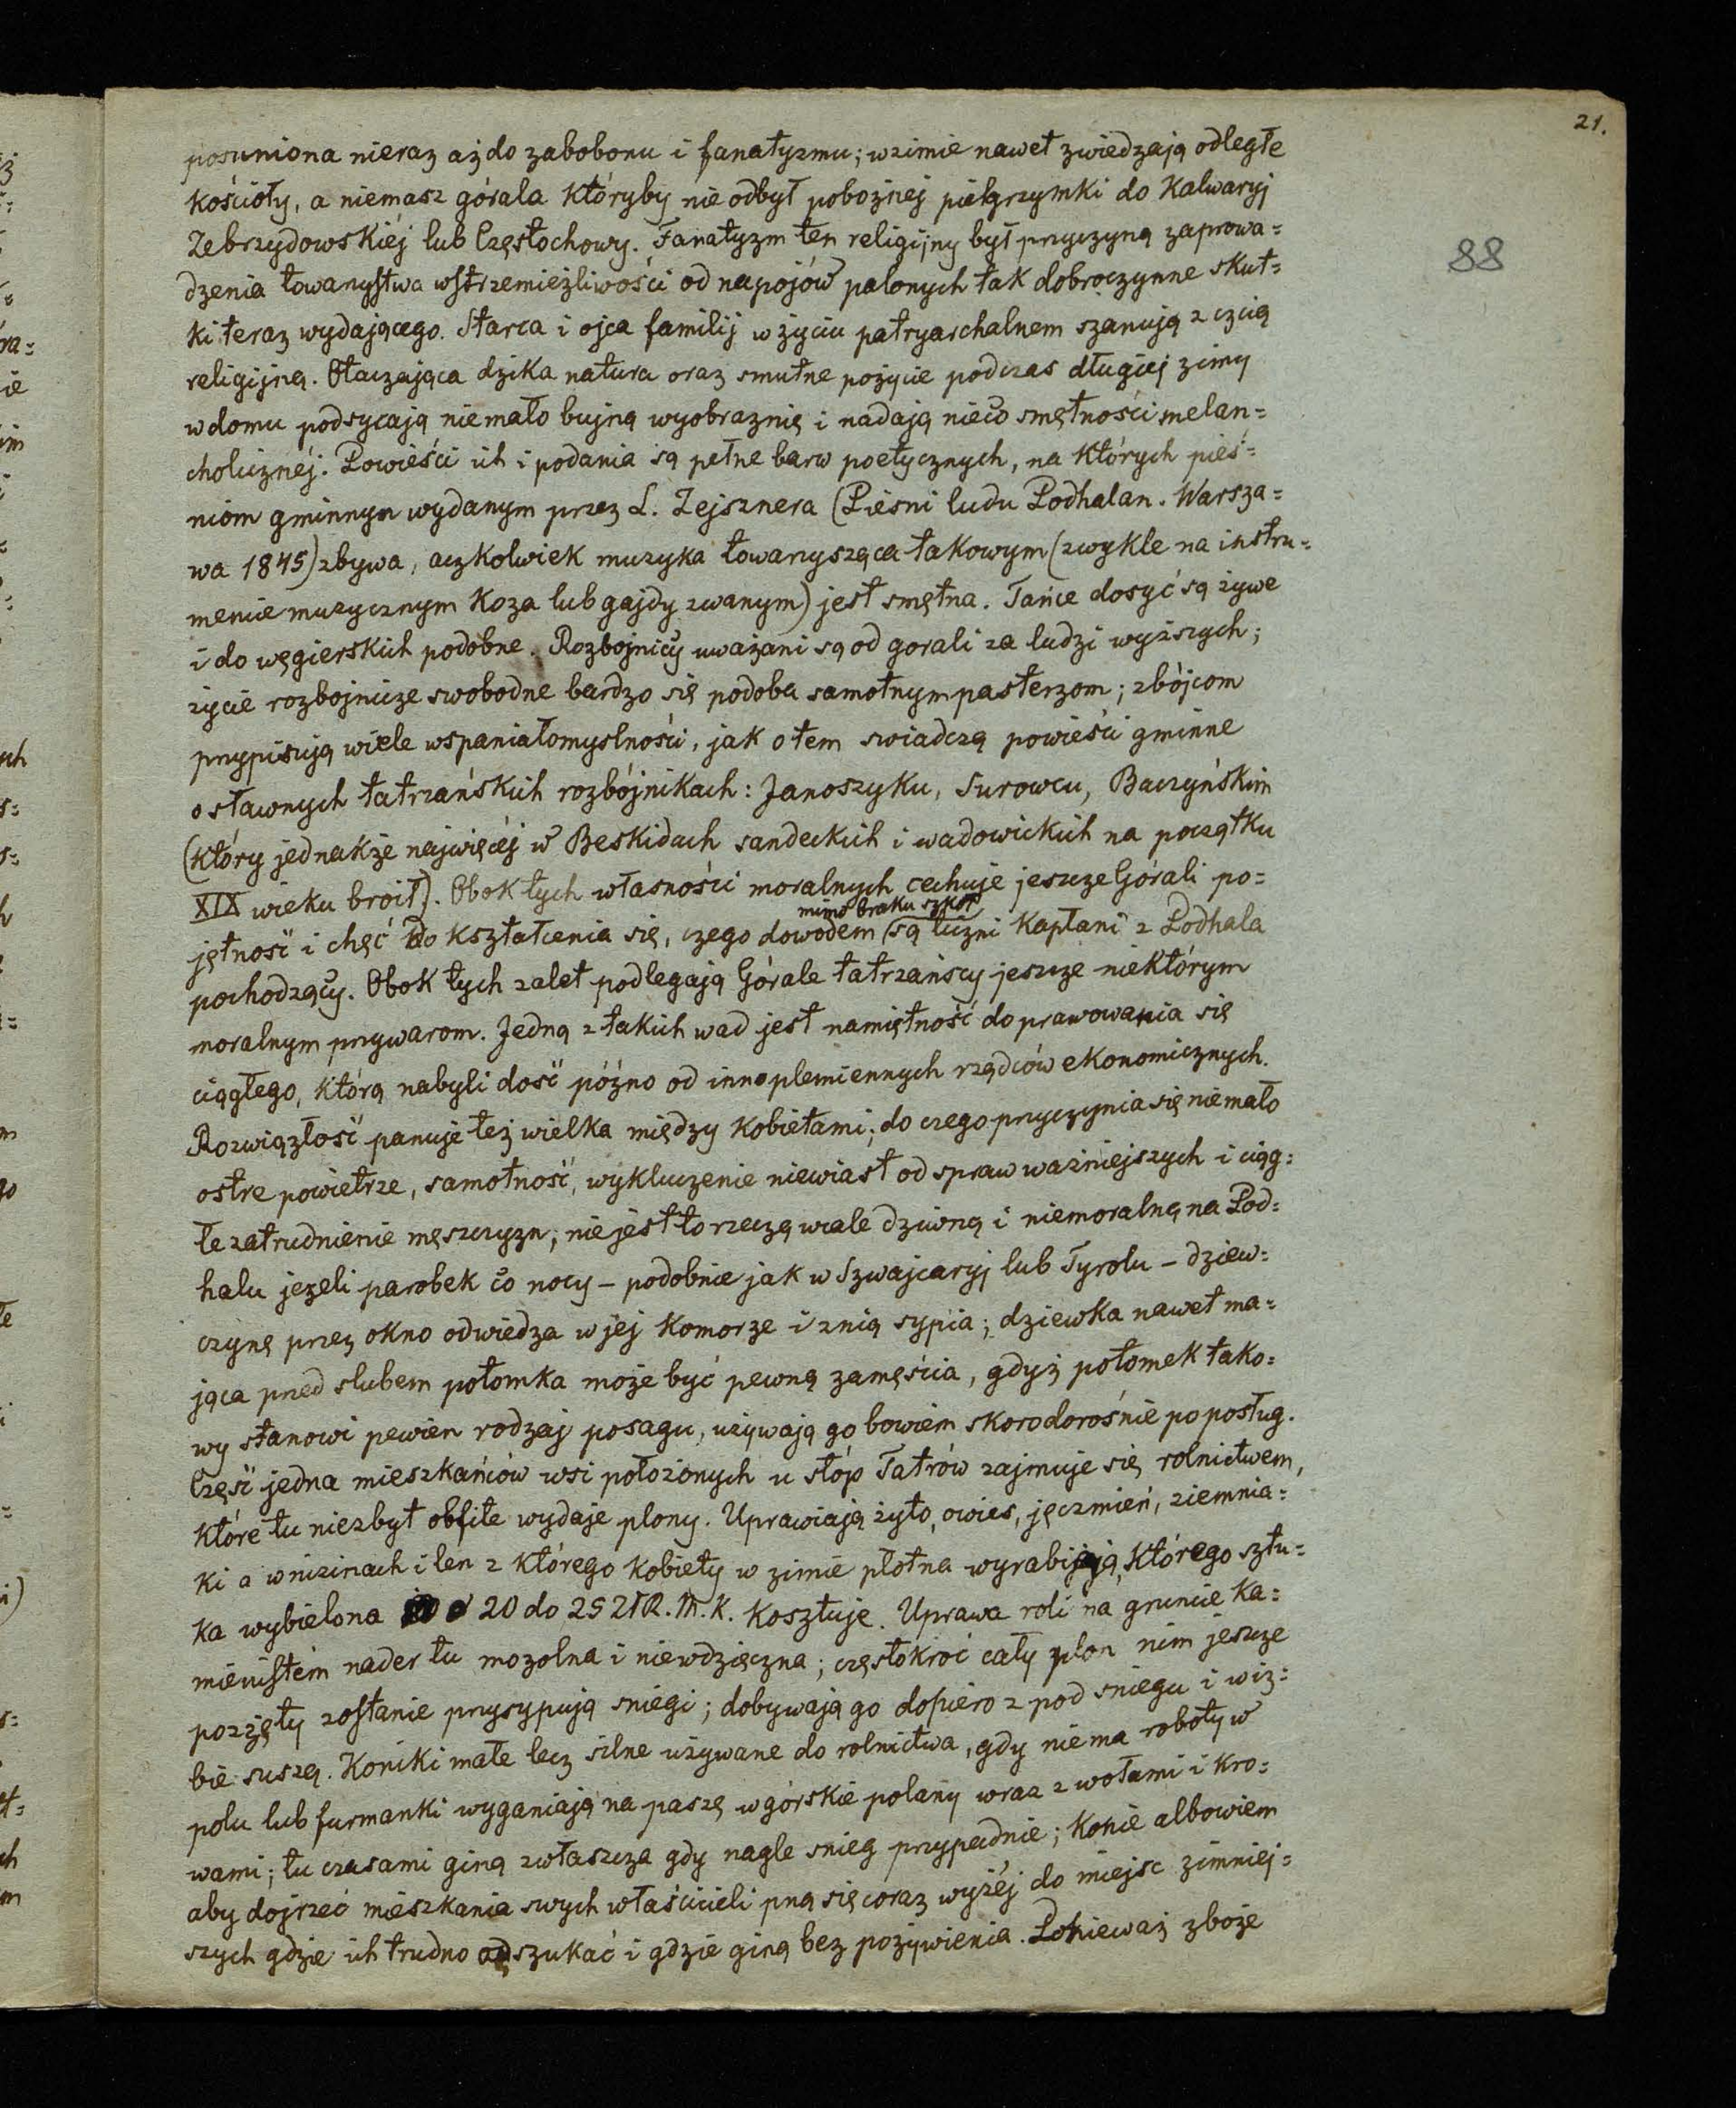 21.
88
posuniona nieraz aż do zabobonu i fanatyzmu; w zimie nawet zwiedzają odległe
kościoły, a niemasz górala któryby nie odbył pobożnej pielgrzymki do Kalwaryj
Zebrzydowskiéj lub Częstochowy. Fanatyzm ten religijny był przyczyną zaprowa=
dzenia towarzystwa wstrzemieźliwości od napojów palonych tak dobroczynne skut=
ki teraz wydającego. Starca i ojca familij w życiu patryarchalnem szanują z czcią
religijną. Otaczająca dzika natura oraz smutne pożycie podczas długiej zimy
w domu podsycają niemało bujną wyobraznię i nadają nieco smętności melan=
cholicznéj. Powieści ich i podania są pełne barw poetycznych, na których pieś=
niom gminnym wydanym przez L. Zejsznera (Pieśni ludu Podhalan. Warsza=
wa 1845) zbywa, aczkolwiek muzyka towarzysząca takowym (zwykle na instru=
mencie muzycznym Koza lub gajdy zwanym) jest smętna. Tańce dosyć są żywe
i do węgierskich podobne. Rozbojnicy uważani są od gorali za ludzi wyższych;
życie rozbojnicze swobodne bardzo się podoba samotnym pasterzom; zbójcom
przypisują wiele wspaniałomyslności, jak o tem swiadczą powieści gminne
o sławnych tatrzańskich rozbójnikach: Janoszyku, Surowcu, Baczyńskim
(który jednakże najwięcéj w Beskidach sandeckich i wadowickich na początku
XIX wieku broił). Obok tych własności moralnych cechuje jeszcze Górali po=
mimo braku szkół
jętność i chęć do kształcenia się, czego dowodem są liczni Kapłani z Podhala
pochodzący. Obok tych zalet podlegają Górale tatrzańscy jeszcze niektórym
moralnym przywarom. Jedną z takich wad jest namiętność do prawowania się
ciągłego, którą nabyli dość późno od innoplemiennych rządców ekonomicznych.
Rozwiązłość panuje też wielka między kobietami; do czego przyczynia się niemało
ostre powietrze, samotność, wykluczenie niewiast od spraw ważniejszych i ciąg=
łe zatrudnienie męszczyzn; nie jest to rzeczą wcale dziwną i niemoralną na Pod=
halu jeżeli parobek co nocy – podobnie jak w Szwajcaryj lub Tyrolu – dziew=
czynę przez okno odwiedza w jej komorze i z nią sypia; dziewka nawet ma=
jąca przed slubem potomka może być pewną zamęścia, gdyż potomek tako=
wy stanowi pewien rodzaj posagu, używają go bowiem skoro dorośnie po posług.
Część jedna mieszkańców wsi położonych u stóp Tatrów zajmuje się rolnictwem,
które tu niezbyt obfite wydaje plony. Uprawiają żyto, owies, jęczmień, ziemnia=
ki a w nizinach i len z którego kobiety w zimie płotna wyrabiają, którego sztu=
ka wybielona 20 do 25 ZłR. M. K. kosztuje. Uprawa roli na gruncie ka=
mienistém nader tu mozolna i niewdzięczna; częstokroć cały plon nim jeszcze
pozżęty zostanie przysypują sniegi; dobywają go dopiero z pod sniegu i w iz=
bie suszą. Koniki małe lecz silne używane do rolnictwa, gdy nie ma roboty w
polu lub furmanki wyganiają na paszę w górskie polany wraz z wołami i kro=
wami; tu czasami giną zwłaszcza gdy nagle snieg przypadnie; konie albowiem
aby dojrzeć mieszkania swych właścicieli pną się coraz wyżéj do miejsc zimniej=
szych gdzie ich trudno odszukać i gdzie giną bez pożywienia. Ponieważ zboże